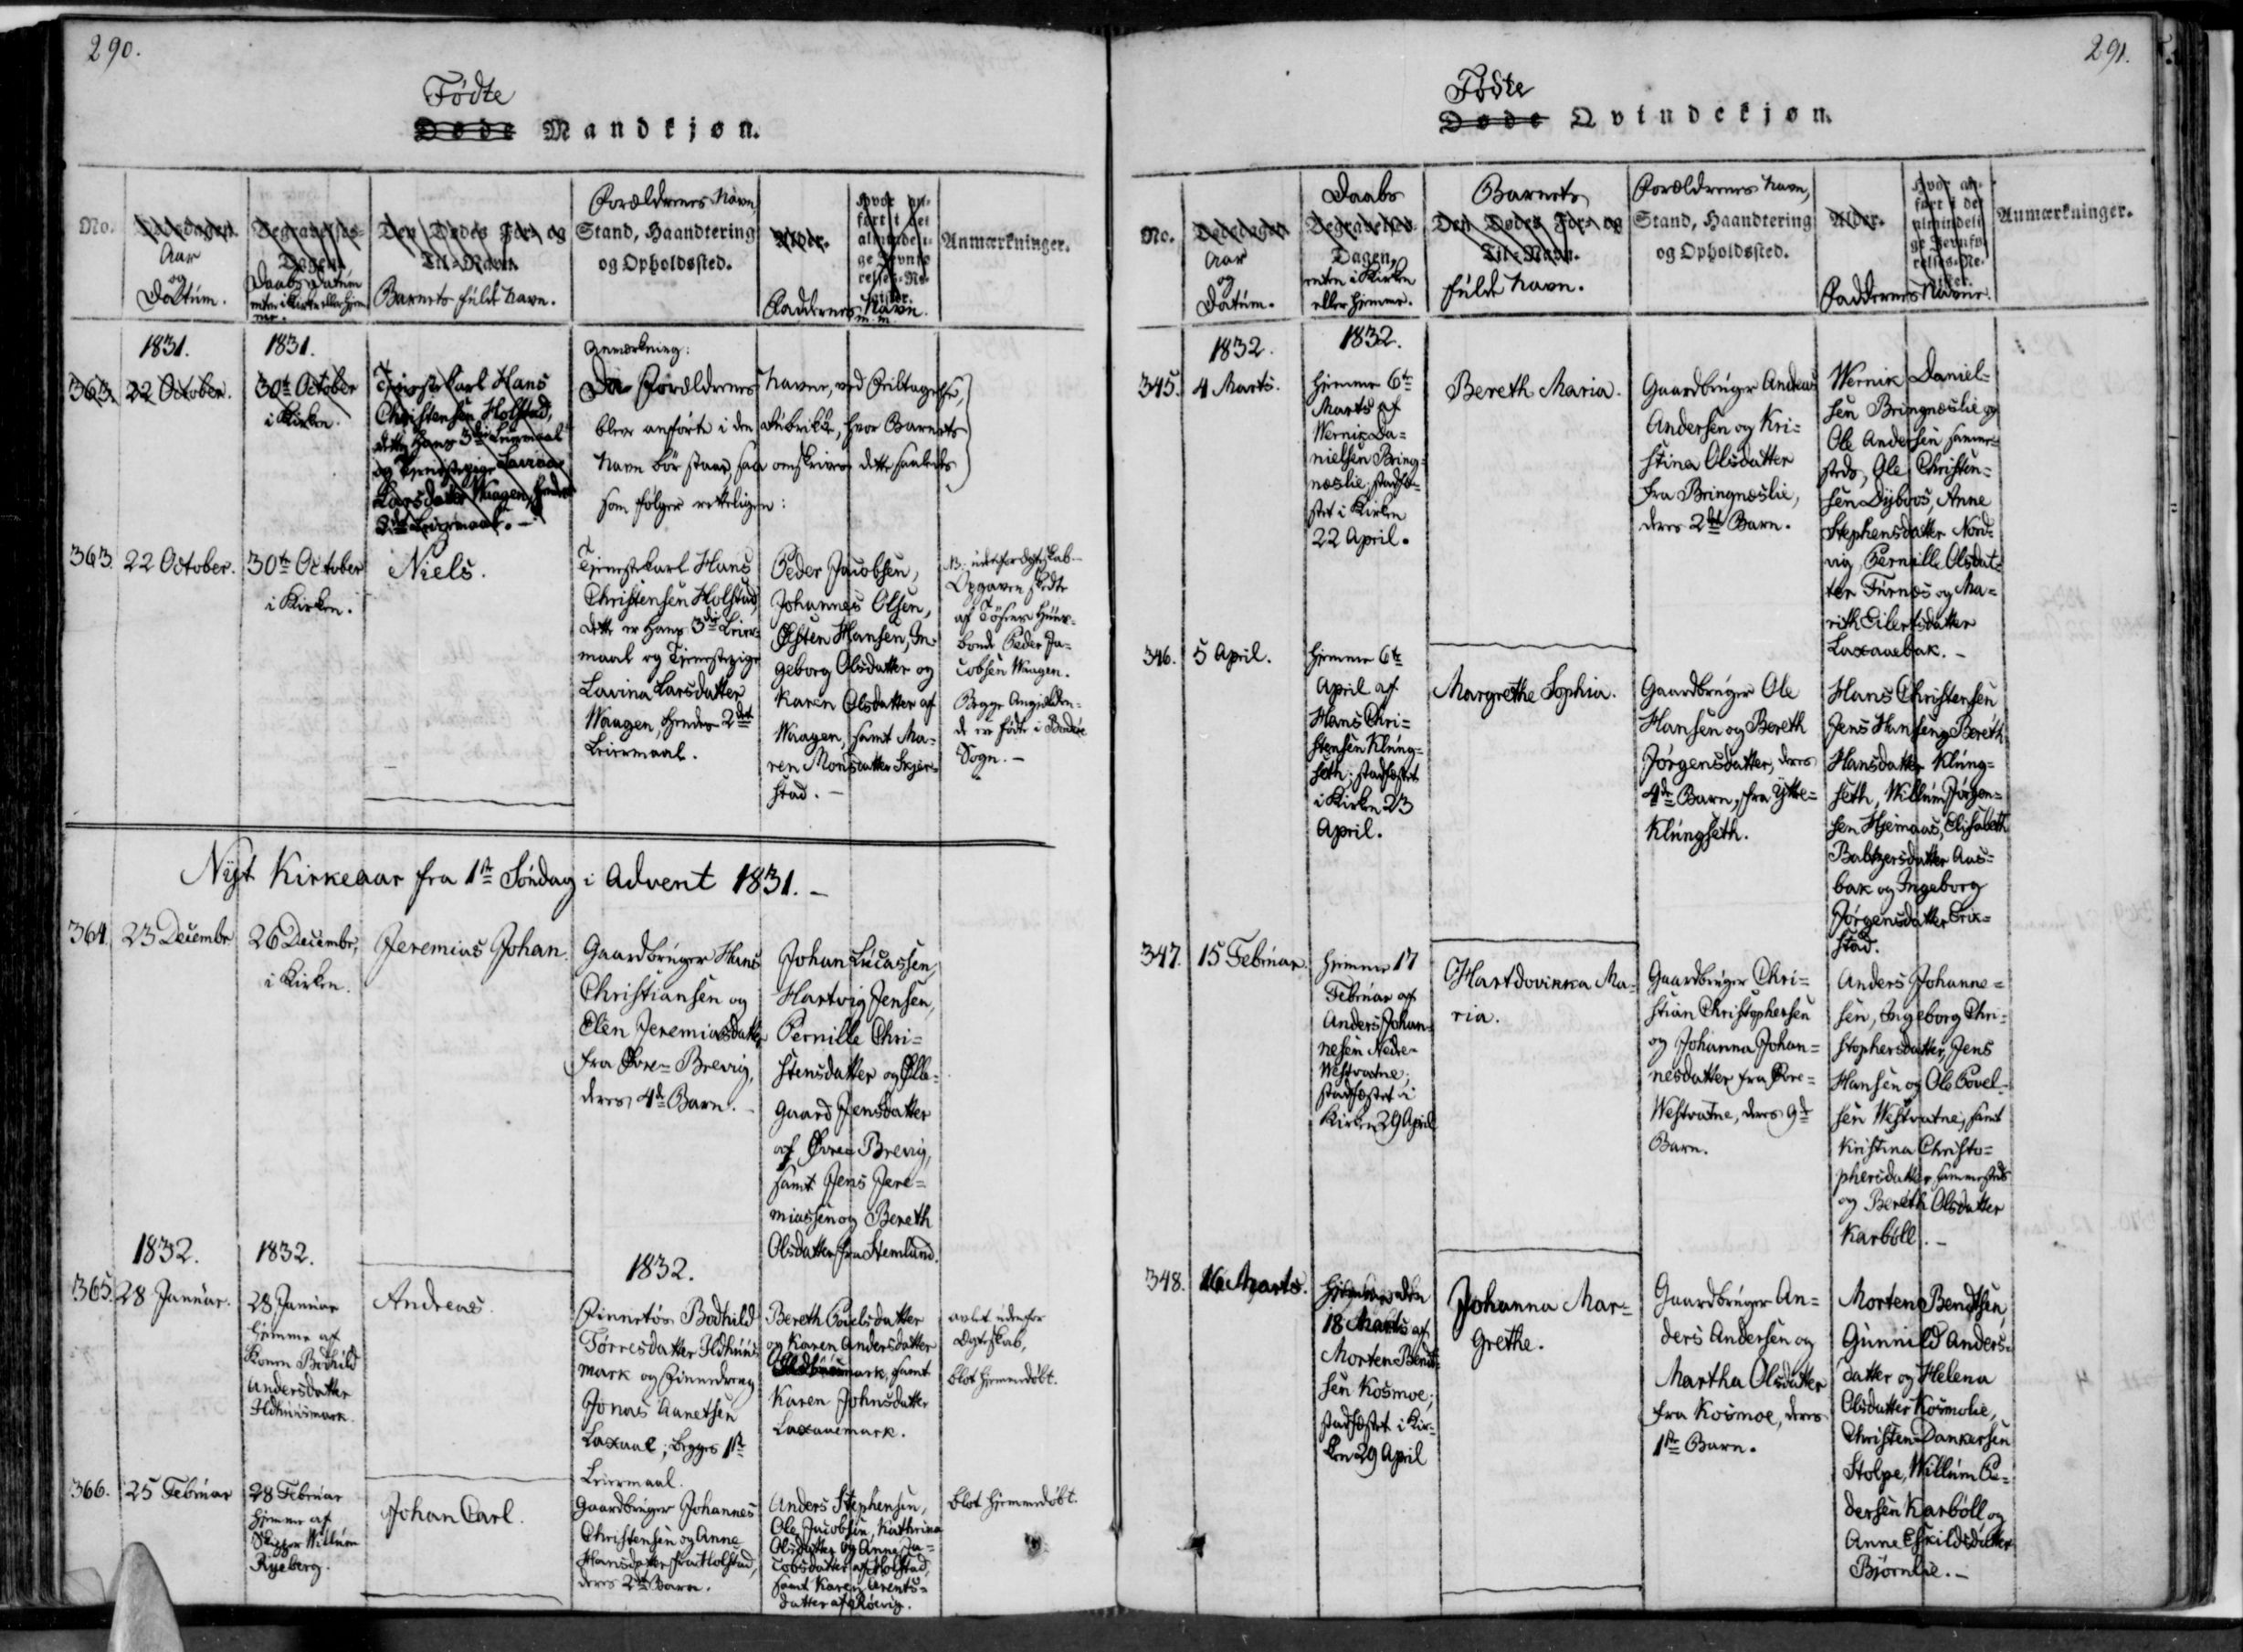 290.
Födte
Döde Mandkjøn.
No.
Dødsdagen
Aar
og
Datum.
Begravelses
Dagen.
Daabs Datum
enten i Kirken eller hjem-
me.
Den Dødes For- og
Til-Navn.
Barnets fulde Navn.
Forældrenes Navn,
Stand, Haandtering
og Opholdssted.
Alder.
Faddernes Navn.
Anmærkninger.
1831.
1831.
363.
22 October.
30te October
i Kirken.
Tjenstekarl Hans
Christensen Holstad,
dette Hans 3die Leiermaal
og Tjenstepige Lavina
Larsdatter Waagen, hendes
2det Leiermaal.
Anmærkning:
Da Forældrenes Navne, ved Feiltagelse,
blev anförte i den Rubrikke, hvor Barnets
Navn bör staae, saa omskrives dette saaledes
som fölger retteligen:
363.
22 October.
30te October
i Kirken.
Niels.
Tjenstekarl Hans
Christensen Holstad,
dette er Hans 3die Leier-
maal og Tjenstepige
Lavina Larsdatter
Waagen, hendes 2det
Leiermaal.
Peder Jacobsen,
Johannes Olsen,
Østen Hansen, In-
geborg Olsdatter og
Karen Olsdatter af
Waagen, samt Ma-
ren Monsdatter Skjer-
stad.
NB. udenfor Ægteskab.
Opgaven skedte
af Tösens Huus-
bonde Peder Ja-
cobsen Waagen.
Begge Angjelden-
de er födte i Bodöe
Sogn.
Nyt Kirkeaar fra 1ste Söndag i Advent 1831.
364.
23 Decembr
26 Decembr,
i Kirken.
Jeremias Johan.
Gaardbruger Hans
Christiansen og
Elen Jeremiasdatter
fra Øvre Brevig,
deres 4de Barn.
Johan Lucassen,
Hartvig Jensen,
Pernille Chri-
stensdatter og Elle-
gaard Jensdatter
af Øvre Brevig,
samt Jens Jere-
miassen og Bereth
Olsdatter fra Stemlund.
1832.
1832.
1832.
365.
28 Januar.
28 Januar
hjemme af
Konen Bodhild
Andersdatter
Ildhuusmark.
Andreas.
Finnetös Bodhild
Törresdatter Ildhuus
mark og Finnedreng
Jonas Annetsen
Laxaae; begges 1ste
Leiermaal.
Bereth Povelsdatter
og Karen Andersdatter
Ildhuusmark, samt
Karen Johnsdatter
Laxaaemark.
avlet udenfor
Ægteskab,
blot hjemmedöbt.
366.
25 Februar
28 Februar
hjemme af
Skipper Willum
Ryeberg.
Johan Carl.
Gaardbruger Johannes
Christensen og Anne
Hansdatter fra Holstad,
deres 2det Barn.
Anders Stephensen,
Ole Jacobsen, Kathrina
Olsdatter og Anne Ja-
cobsdatter af Holstad,
samt Karen Arents-
datter af Röevig.
blot hjemmedöbt.
291.
Födte
Döde Qvindekjøn.
No.
Dødsdagen
Aar
og
Datum.
Daabs
Begravelses
Dagen,
enten i Kirken
eller hjemme.
Barnets
Den Dødes For- og
Til-Navn.
fulde Navn.
Forældrenes Navn,
Stand, Haandtering
og Opholdssted.
Alder.
Faddernes Navne.
Anmærkninger.
1832.
1832.
345.
4 Marts.
hjemme 6te
Marts af
Wernik Da-
nielsen Bring-
neslie; stadfæ-
stet i Kirken
22 April.
Bereth Maria.
Gaardbruger Andreas
Andersen og Kri-
stina Olsdatter
fra Bringneslie,
deres 2det Barn.
Wernik Daniel-
sen Bringneslie og
Ole Andersen samme-
steds, Ole Christen-
sen Dybvos, Anne
Stephensdatter Nord-
vig, Pernille Olsdat-
ter Furnes og Ma-
rith Eilertsdatter
Laxaaebak.
346.
5 April.
hjemme 6te
April af
Hans Chri-
stensen Klung-
seth; stadfæstet
i Kirken 23
April.
Margrethe Sophia.
Gaardbruger Ole
Hansen og Bereth
Jörgensdatter, deres
4de Barn, fra Ytte-
Klungseth.
Hans Christensen
Jens Hansen og Bereth
Hansdatter Klung-
seth, Willum Jörgen-
sen Hjemaas, Elisabeth
Baltzersdatter Aas-
bak og Ingeborg
Jörgensdatter Erik-
stad.
347.
15 Februar.
hjemme 17
Februar af
Anders Johan-
nesen Nedre-
Westvatne;
stadfæstet i
Kirken 29 April
Hartdovikka Ma-
ria.
Gaardbruger Chri-
stian Christophersen
og Johanna Johan-
nesdatter fra Øvre-
Westvatne, deres 9de
Barn.
Anders Johanne-
sen, Ingeborg Chri-
stophersdatter, Jens
Hansen og Ole Povel-
sen Westvatne, samt
Kristina Christo-
phersdatter sammesteds
og Bereth Olsdatter
Karböll.
348.
16 Marts.
hjemme den
18 Marts af
Morten Bendt-
sen Kosmoe;
stadfæstet i Kir-
ken 29 April
Johanna Mar-
grethe.
Gaardbruger An-
ders Andersen og
Martha Olsdatter
fra Kosmoe, deres
1ste Barn.
Morten Bendtsen,
Gunnild Anders-
datter og Helena
Olsdatter Kosmolie,
Christen Dankersen
Stolpe, Willum Pe-
dersen Karböll og
Anne Eskildsdatter
Björnlie.